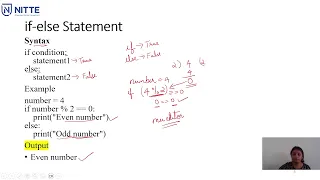 NITTE
if-else Statement
Syntax
if condition;
statement1 → True
else;
statement2 → False
Example
number = 4
if number % 2 == 0:
print("Even number")
else:
print("Odd number")
Output
• Even number
if → True
else → False
2) 4
4
0
number = 4
if (4 % 2) == 0
0 == 0